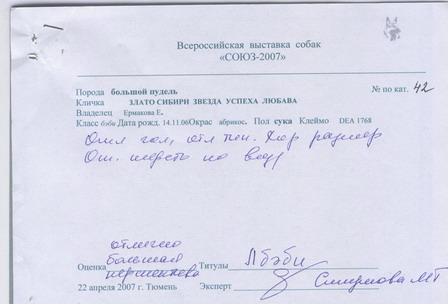 Всероссийская выставка собак
«СОЮЗ-2007»
Порода большой пудель № по кат. 42
Кличка ЗЛАТО СИБИРИ ЗВЕЗДА УСПЕХА ЛЮБАВА
Владелец Ермакова Е.
Класс бэби Дата рожд. 14.11.06 Окрас абрикос. Пол сука Клеймо DEA 1768
размер
От. шерсть по виду
отлично
большая
Оценка Титулы Л бэби
22 апреля 2007 г. Тюмень Эксперт Смирнова МГ